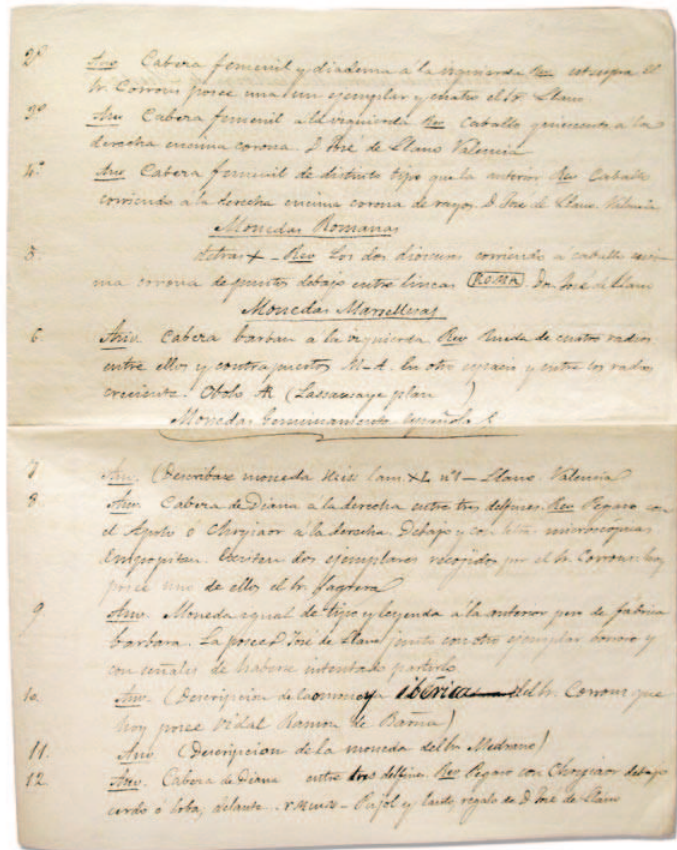 2º Anv Cabeza femenil y diadema á la izquierda Rev estrupra el
Sr. Corrons posee una un ejemplar y cuatro el Sr. Llano
3º Anv Cabeza femenil a la izquierda Rev Caballo a la
derecha encima corona. D José de Llano Valencia
4º Anv Cabeza femenil de distinto tipo que la anterior Rev Caballo
corriendo á la derecha encima corona de rayos D. José de Llano. Valencia
Monedas Romanas
5. detras X - Rev Los dos dioscuros corriendo á caballo
una corona de puntos debajo entre lineas ROMA Dn José de Llano
Monedas Marsellesas
6. Anv. Cabeza barbara á la izquierda Rev Rueda de cuatro radios
entre ellos y contrapuestos M-A. En otro espacio y entre los radios
creciente. Obolo AR (Lassausaye plan )
Monedas genuinamente española s
7 Anv. (Describase moneda Heiss lam. XL nº1 - Llano. Valencia
8. Anv. Cabeza de Diana á la derecha entre tres delfines. Rev Pegaso con
el Apolo ó Chrysaor á la derecha. Debajo y con letras microscopicas
Emporiton. Existen dos ejemplares recojidos por el Sr. Corrons hoy
posee uno de ellos el Sr.
9 Anv. Moneda igual de tipo y leyenda á la anterior pero de fabrica
barbara. La posee D. José de Llano junto con otro ejemplar y
con señales de haberse intentado partirlo
10. Anv. (Descripcion de la moneda ibérica del Sr. Corrons que
hoy posee Vidal Ramon de Barna)
11. Anv (Descripcion de la moneda del Sr Medrano)
12. Anv. Cabeza de Diana entre tres delfines. Rev Pegaso con Chrysaor debajo
cerdo ó loba; delante. - Pujol y regalo de D José de Llano